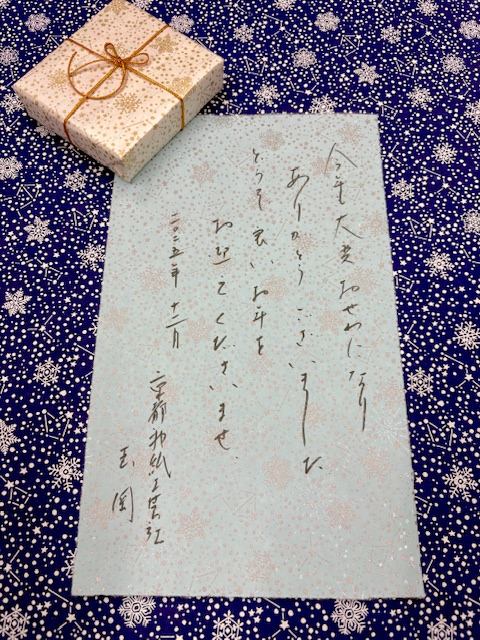 今年も大変おせわになり
ありがとうございました
どうぞ良いお年を
お迎えくださいませ、
二〇二五年 十二月
京都和紙工芸社
玉岡